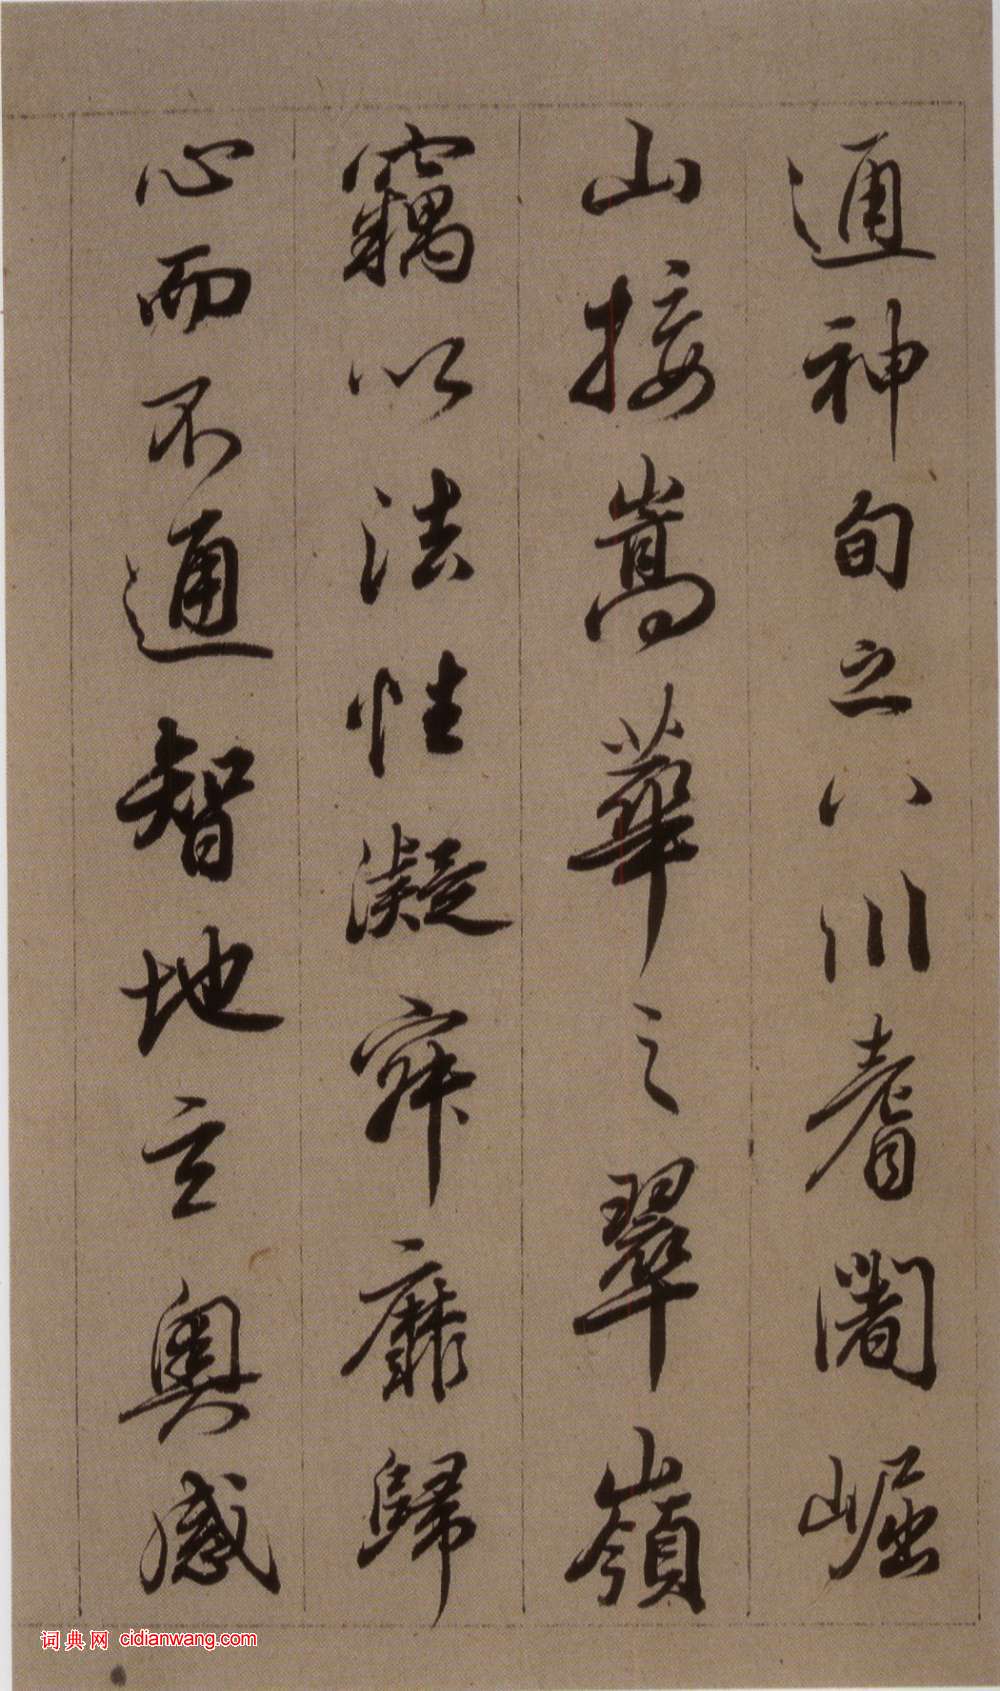 通神甸之八川耆闍崛
山接嵩華之翠嶺
竊以法性凝寂靡歸
心而不通智地玄奧感
词典网 cidianwang.com